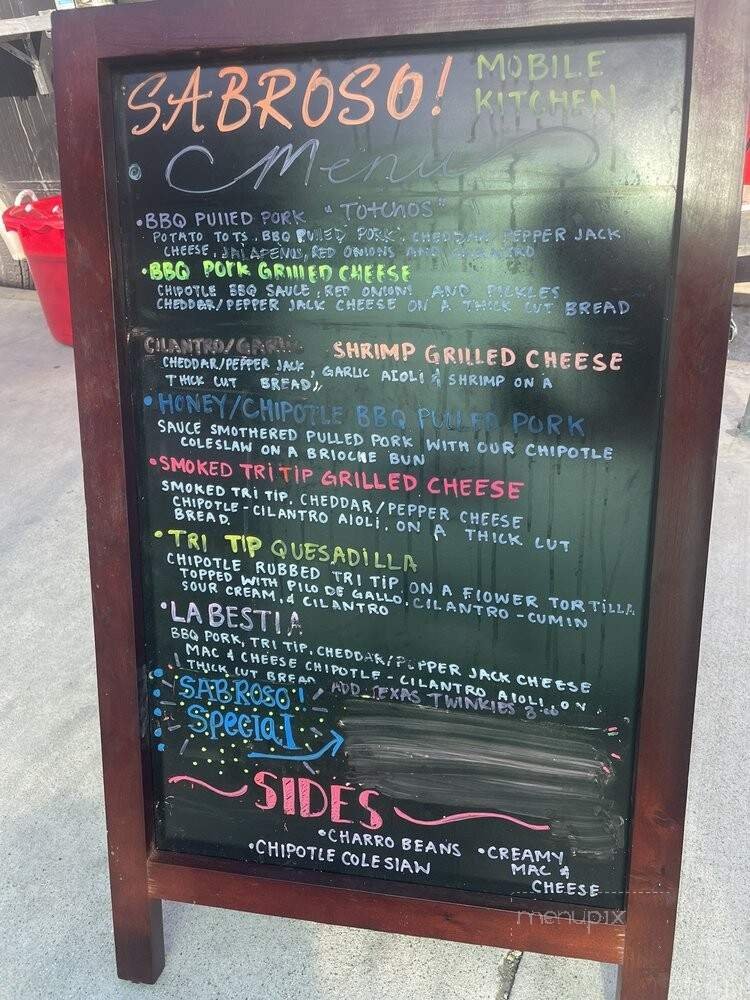 SABROSO! MOBILE KITCHEN
Menu
•BBQ PUllED PORK "TOTCHOS"
POTATO TOTS, BBQ PULLED PORK, CHEDDAR PEPPER JACK
CHEESE, JALAPENOS, RED ONIONS AND CILANTRO
•BBQ PORK GRILLED CHEESE
CHIPOTLE BBQ SAUCE, RED ONIONS AND PICKLES
CHEDDAR/PEPPER JACK CHEESE ON A THICK CUT BREAD
CILANTRO/GARLIC SHRIMP GRILLED CHEESE
CHEDDAR/PEPPER JACK, GARLIC AIOLI & SHRIMP ON A
THICK CUT BREAD
•HONEY/CHIPOTLE BBQ PULLED PORK
SAUCE SMOTHERED PULLED PORK WITH OUR CHIPOTLE
COLESLAW ON A BRIOCHE BUN
•SMOKED TRI TIP GRILLED CHEESE
SMOKED TRI TIP, CHEDDAR/PEPPER CHEESE
CHIPOTLE-CILANTRO AIOLI, ON A THICK CUT
BREAD.
•TRI TIP QUESADILLA
CHIPOTLE RUBBED TRI TIP ON A FlOWER TORTILLA
TOPPED WITH PILO DE GALLO, CILANTRO-CUMIN
SOUR CREAM, & CILANTRO
•LA BESTIA
BBQ PORK, TRI TIP, CHEDDAR/PEPPER JACK CHEESE
MAC & CHEESE CHIPOTLE-CILANTRO AIOLI, ON
THICK CUT BREAD ADD TEXAS TWINKIES
SABROSO!
SPeciaI
SIDES
•CHARRO BEANS
•CHIPOTLE COLESlAW
•CREAMY
MAC &
CHEESE
menupix